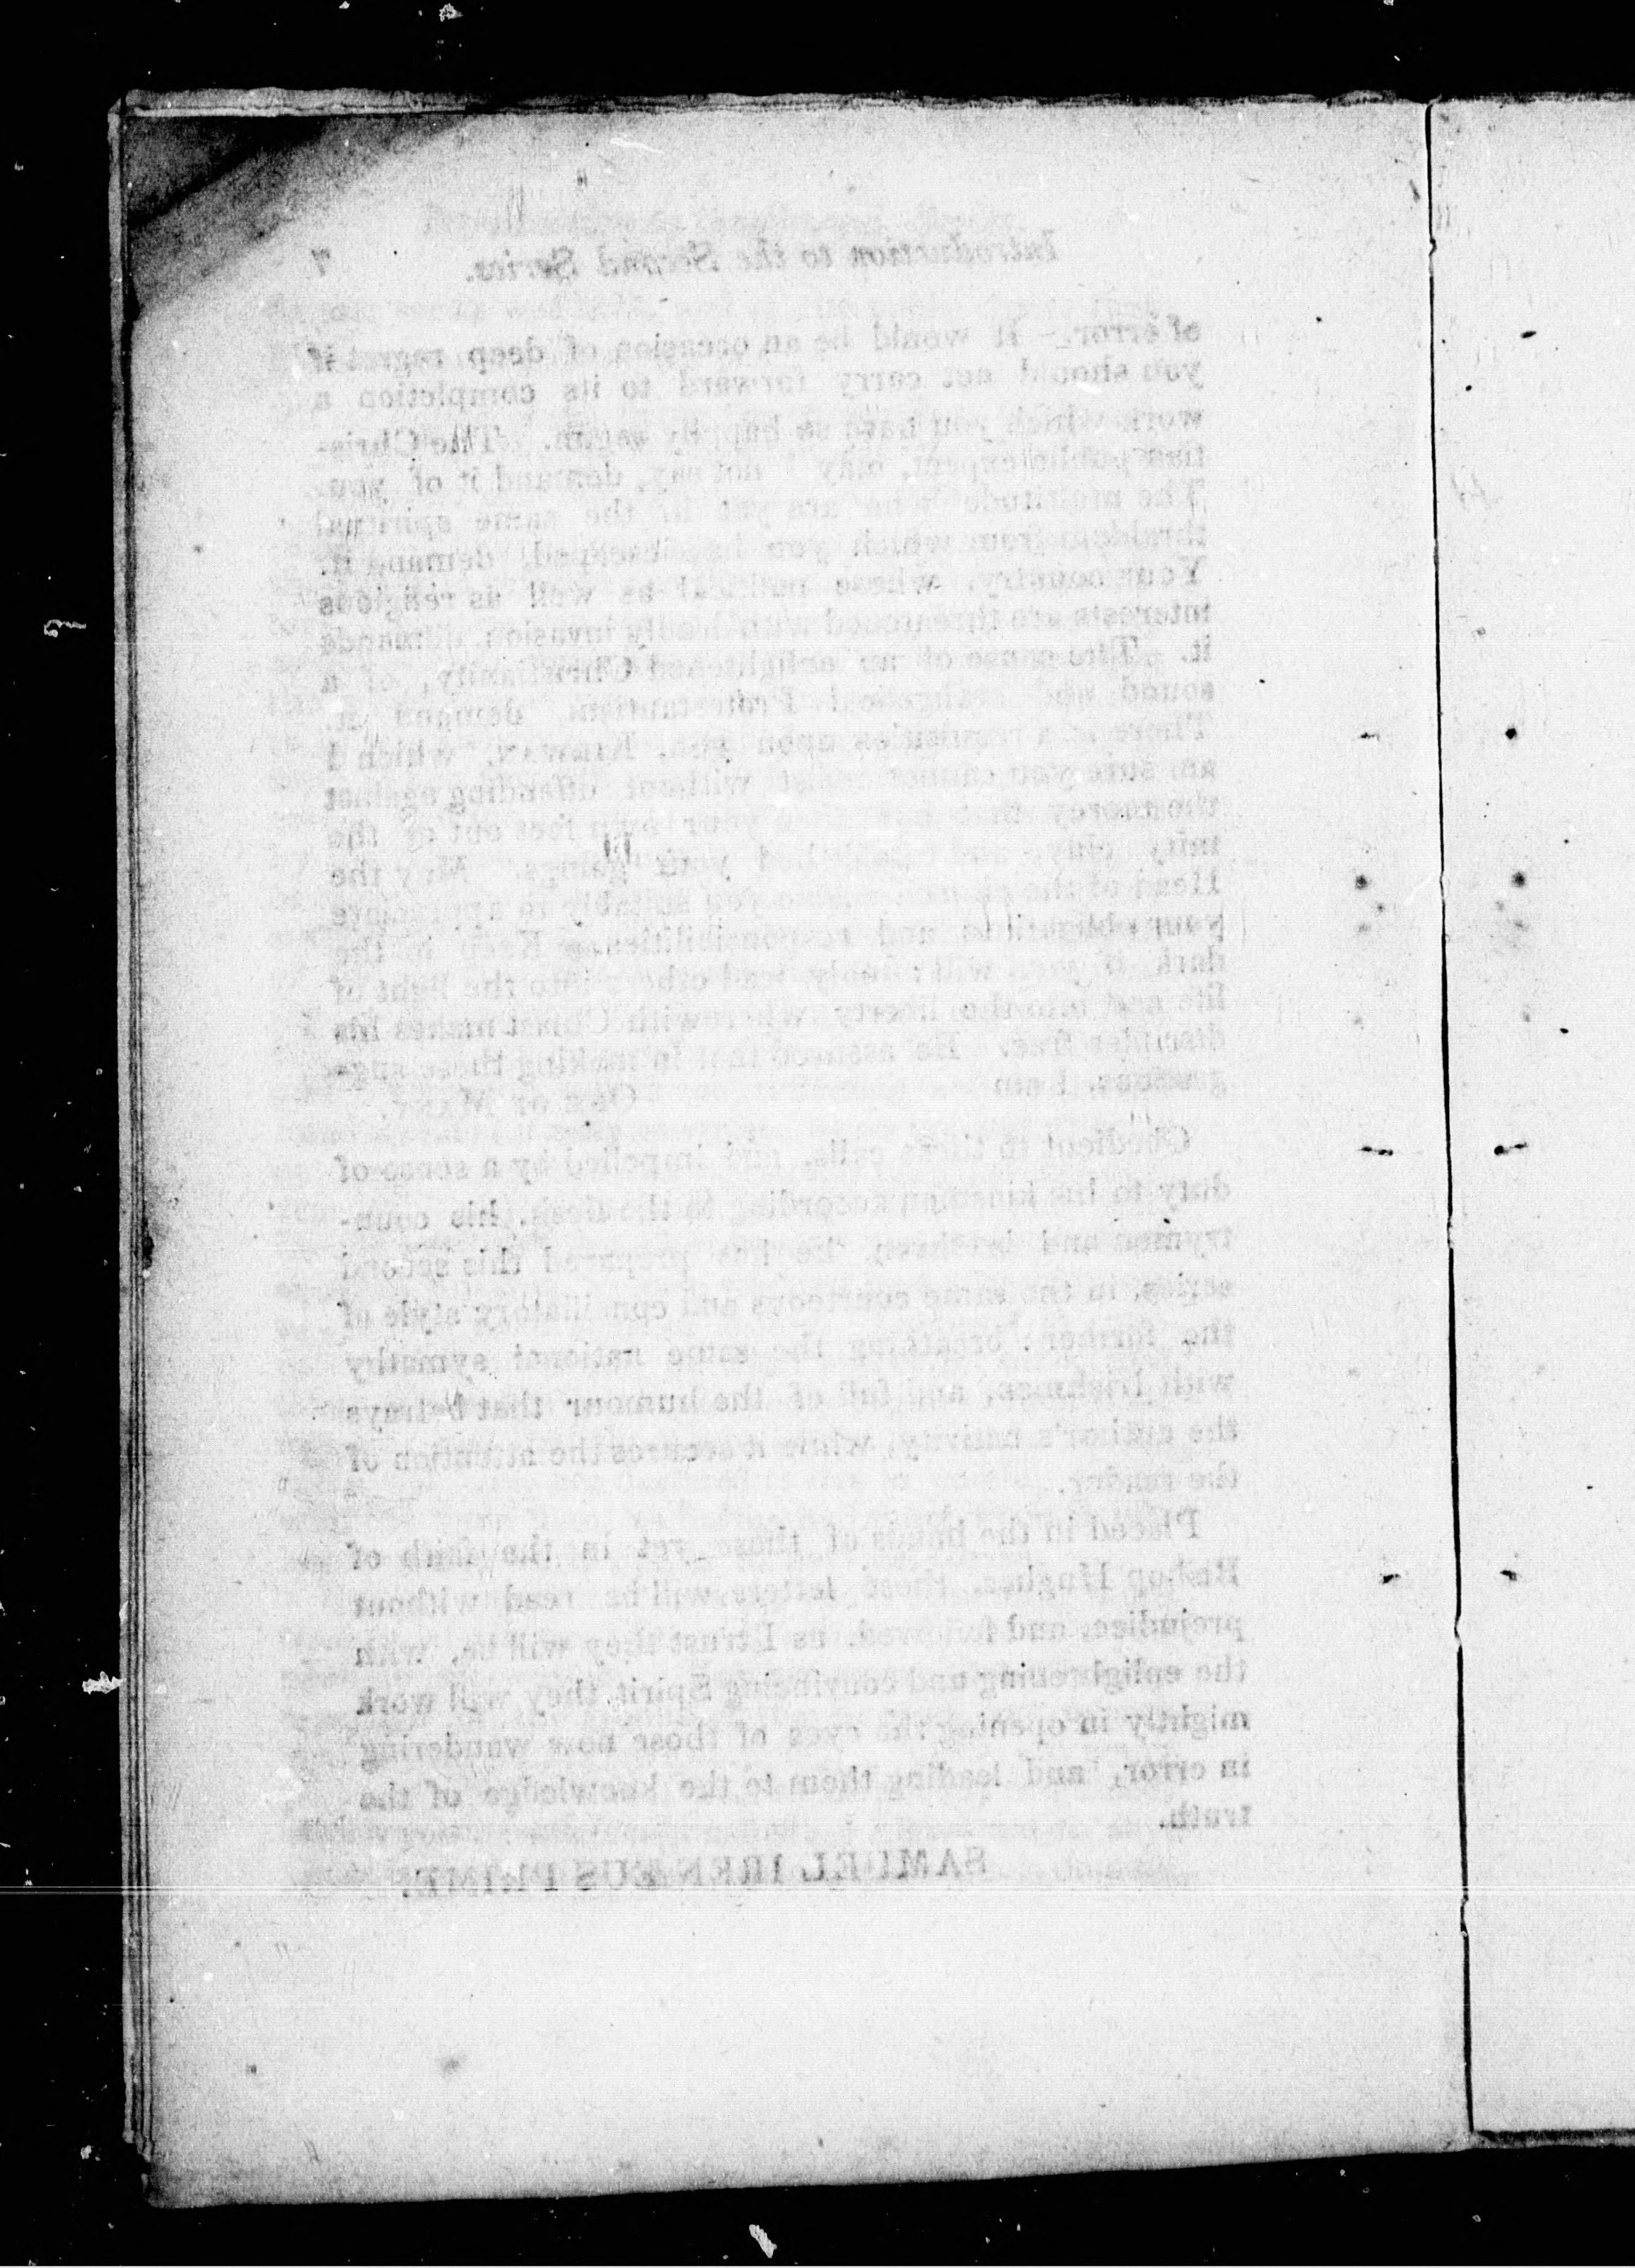 Introduction to the Second Series. 7
of error. It would be an occasion of deep regret if
you should not carry forward to its completion a
work which you have so happily begun. The Chris-
tian public expect, may I not say, demand it of you.
The multitude who are yet in the same spiritual
thraldom from which you have escaped, demand it.
Your country, whose political as well as religious
interests are threatened with deadly invasion, demands
it. The cause of an enlightened Christianity, of a
sound and evangelical Protestantism, demand it.
There is a upon you, KIRWAN, which I
am sure you cannot resist without offending against
the mercy that has your own feet out of the
miry clay, and established your goings. May the
Head of the church you suitably to appreciate
your obligations and responsibilities. Keep in the
dark if you will; only lead others into the light of
life and into the liberty wherewith Christ makes his
disciples free. Be assured that in making these sug-
gestions, I am
ONE OF MANY.
Obedient to these calls, and impelled by a sense of
duty to his kinsmen according to the flesh, his coun-
trymen and brethren, he has prepared this second
series, in the same courteous and conciliatory style of
the former: breathing the same national symathy
with Irishmen, and full of the humour that betrays
the author's nativity, while it secures the attention of
the reader.
Placed in the hands of those yet in the faith of
Bishop Hughes, these letters will be read without
prejudice, and followed, as I trust they will be, with
the enlightening and convincing Spirit, they will work
mightily in opening the eyes of those now wandering
in error, and leading them to the knowledge of the
truth.
SAMUEL IRENÆUS PRIME.